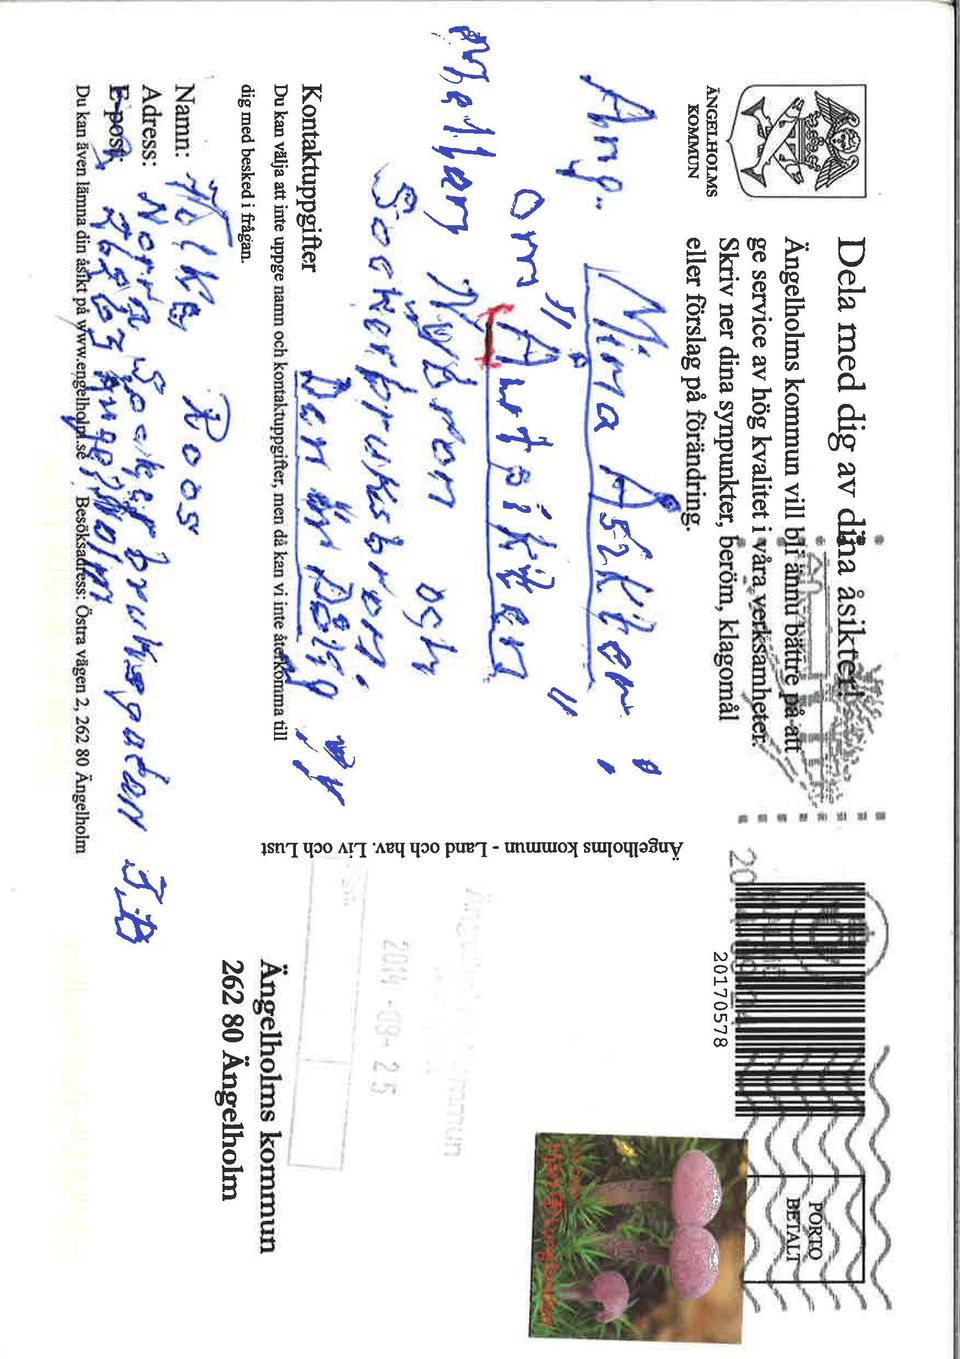 ÄNGELHOLMS
KOMMUN
Dela med dig av dina åsikter!
Ängelholms kommun vill bli ännu bättre på att
ge service av hög kvalitet i våra verksamheter.
Skriv ner dina synpunkter, beröm, klagomål
eller förslag på förändring.
Ang. Mina Åsikter:
Om "Aurtpikken"
Mellan Nybron och
Sockerbruksbron.
Den är Dålig
Kontaktuppgifter
Du kan välja att inte uppge namn och kontaktuppgifter, men då kan vi inte återkomma till
dig med besked i frågan.
Namn: Roos
Adress: Norra Sockerbruksgatan
E-post: 26263 Ängelholm
Du kan även lämna din åsikt på www.engelholm.se Besöksadress: Östra vägen 2, 262 80 Ängelholm
Ängelholms kommun - Land och hav. Liv och Lust
20170578
PORTO
BETALT
2014 -09- 25
Ängelholms kommun
262 80 Ängelholm